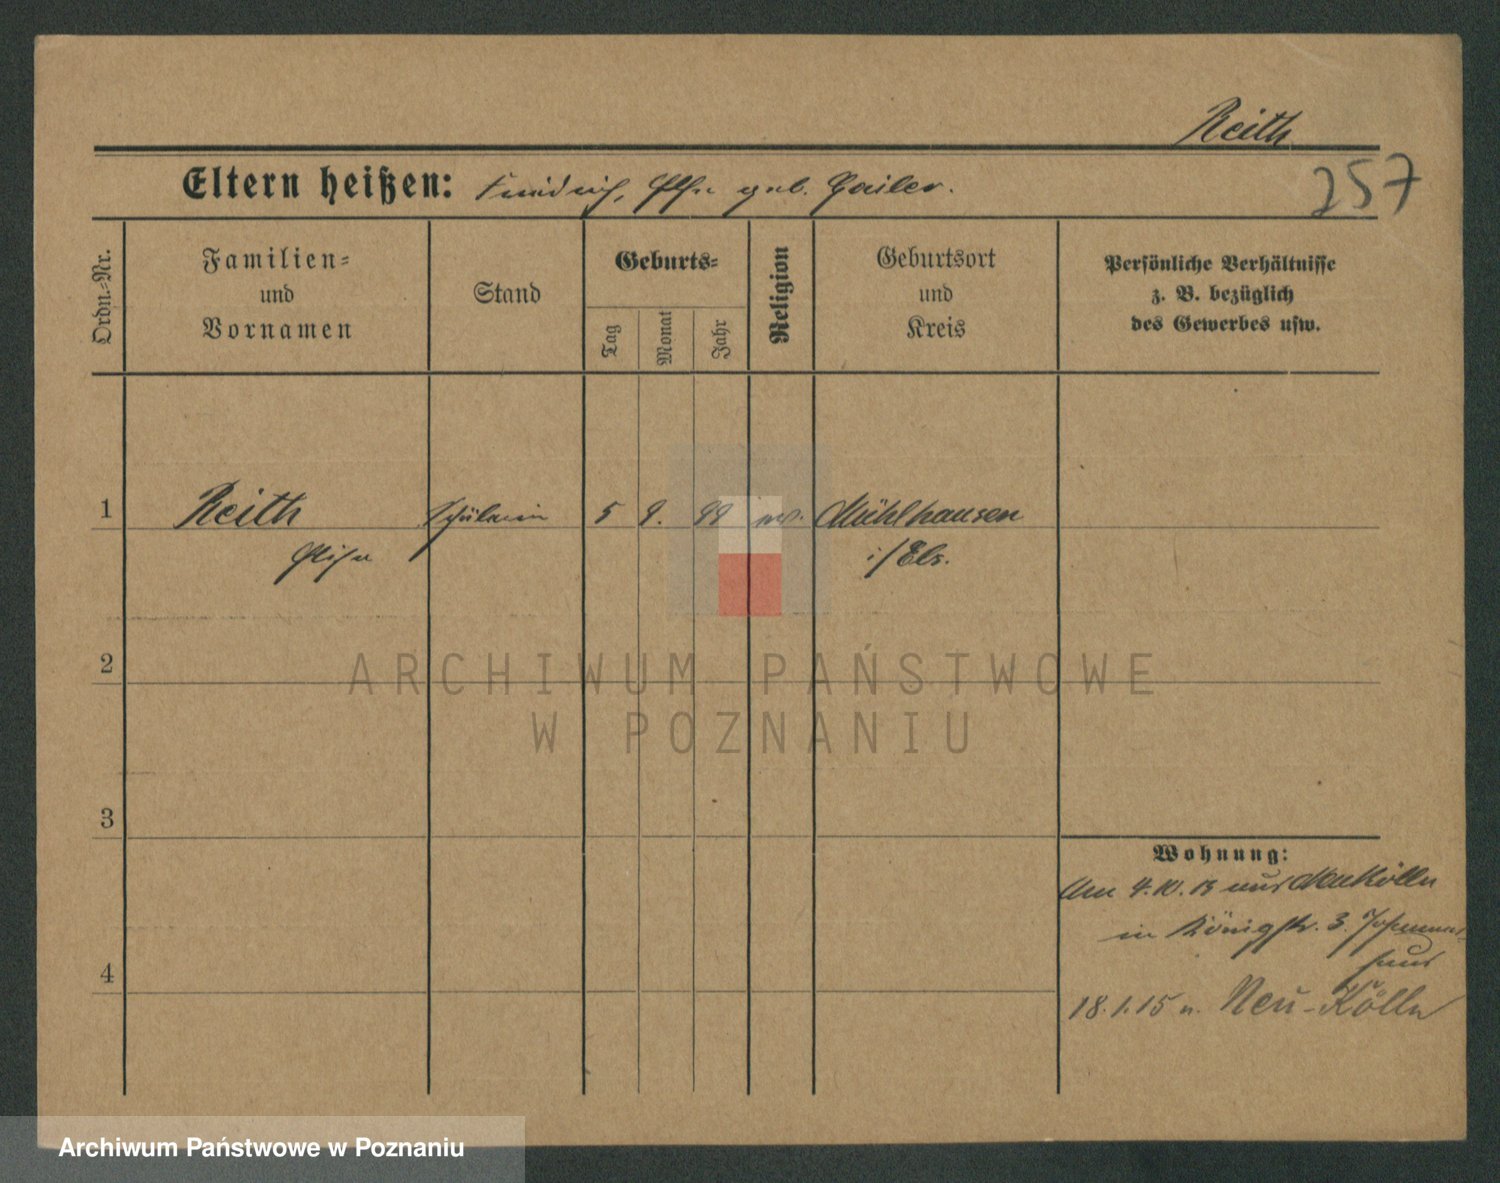 Reith
257
Eltern heißen: Friedrich, geb. Gailer.
Ordn.-Nr.
Familien-
und
Vornamen
Stand
Geburts-
Tag
Monat
Jahr
Religion
Geburtsort
und
Kreis
Persönliche Verhältnisse
z. B. bezüglich
des Gewerbes usw.
1 Reith Schülerin 5 9. 99 ev. Mühlhausen
i/Els.
2
3
4
Wohnung:
Am 4.10.13 aus Neukölln
in Königstr. 3. Johannes
haus
18.1.15 n. Neu-Kölln
ARCHIWUM PAŃSTWOWE
W POZNANIU
Archiwum Państwowe w Poznaniu